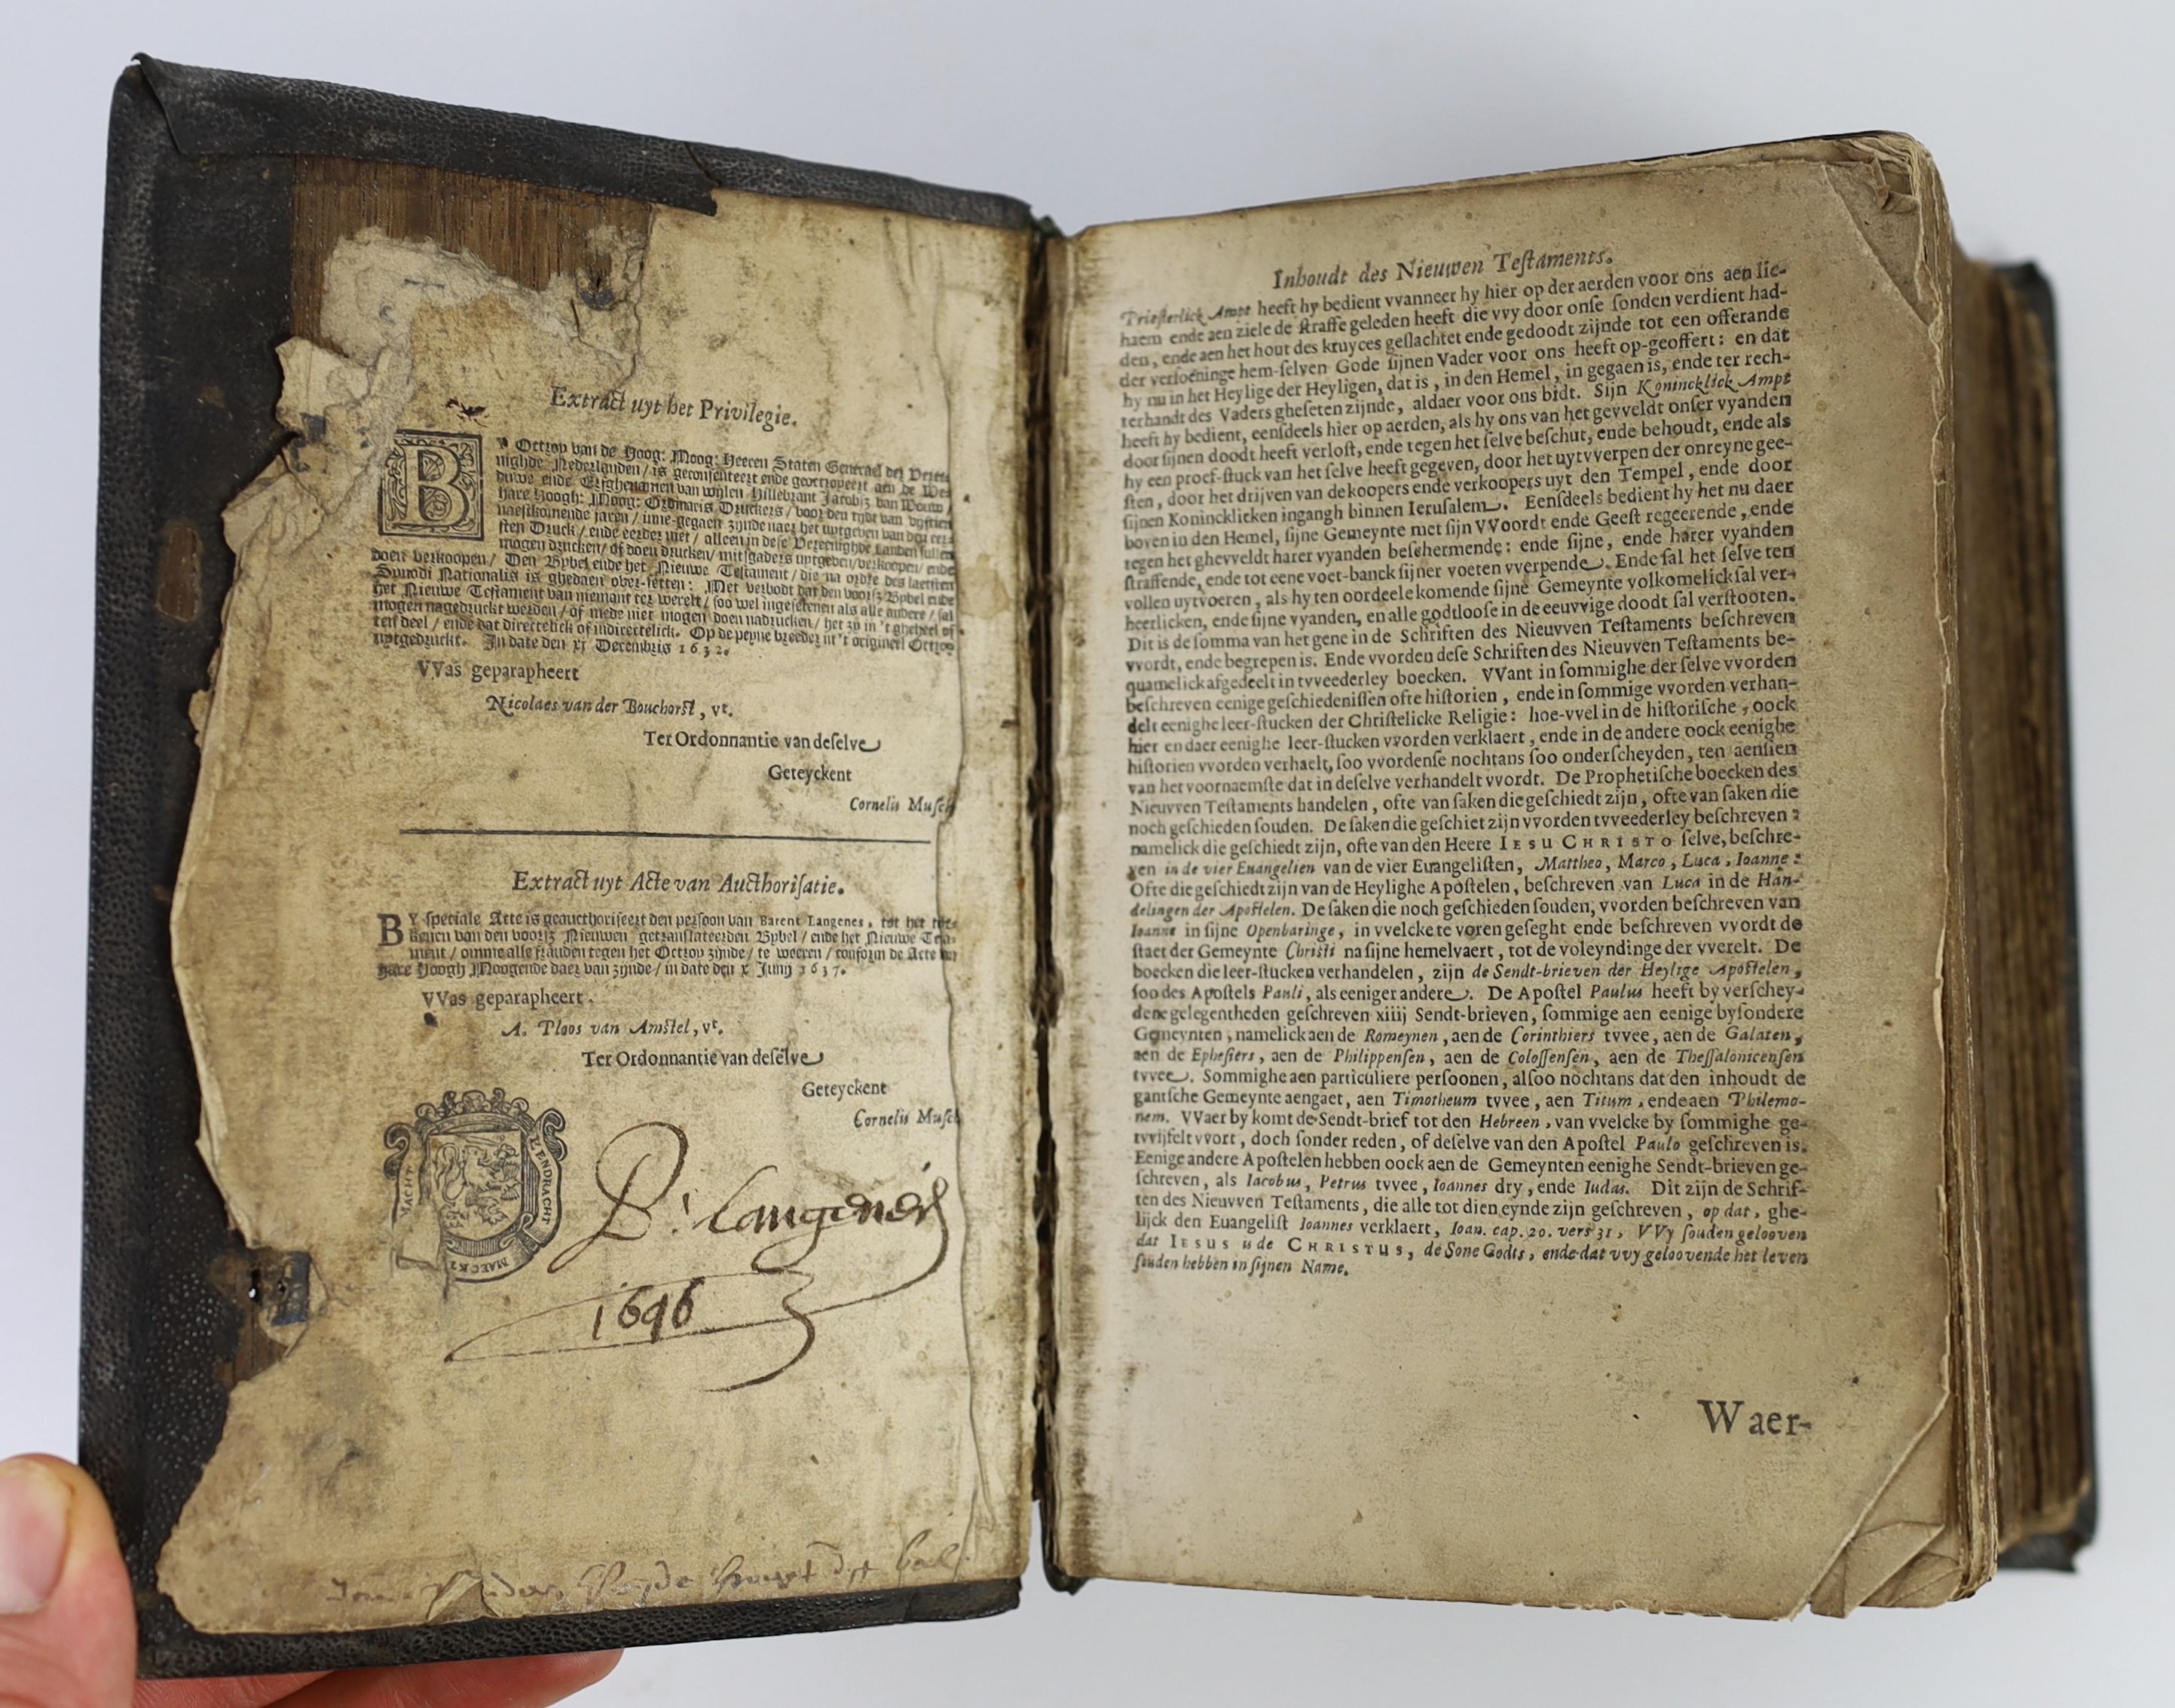 Extract uyt het Privilegie.
BY Octroy van de Hoog: Moog: Heeren Staten Generael der Veree-
nighde Nederlanden / is geconsenteert ende geoctroyeert aen de We-
duwe ende Erfghenamen van wijlen Hillebrant Jacobsz van Wouw /
hare Hoogh: Moog: Ordinaris Druckers / voor den tijdt van vijftien
naestkomende jaren / inne-gegaen zijnde naer het uytgeven van den eer-
sten Druck / ende eerder niet / alleen in dese Vereenighde Landen sullen
mogen drucken / of doen drucken / mitsgaders uytgeven / verkoopen / ende
doen verkoopen / Den Bybel ende het Nieuwe Testament / die na ordre des laetsten
Synodi Nationalis is ghedaen over-setten: Met verbodt dat den voorsz Bybel ende
het Nieuwe Testament van niemant ter werelt / soo wel ingesetenen als alle andere / sal
mogen nagedruckt werden / of mede niet mogen doen nadrucken / het zy in 't gheheel of
ten deel / ende dat directelick of indirectelick. Op de peyne breeder in 't origineel Octroy
uytgedruckt. In date den xj Decembris 1632.
VVas geparapheert
Nicolaes van der Bouchorst, vt.
Ter Ordonnantie van deselve
Geteyckent
Cornelis Musch
Extract uyt Acte van Aucthorisatie.
BY speciale Acte is geaucthoriseert den persoon van Barent Langenes, tot het tee-
kenen van den voorsz Nieuwen getranslateerden Bybel / ende het Nieuwe Testa-
ment / omme alle frauden tegen het Octroy zijnde / te weeren / conform de Acte van
hare Hoogh Moogende daer van zijnde / in date den x Junij 1637.
VVas geparapheert.
A. Ploos van Amstel, vt.
Ter Ordonnantie van deselve
Geteyckent
Cornelis Musch
EENDRACHT MAECKT MACHT
B: Langenes
1646
Inhoudt des Nieuwen Testaments.
Priesterlick Ampt heeft hy bedient vvanneer hy hier op der aerden voor ons aen lic-
haem ende aen ziele de straffe geleden heeft die vvy door onse sonden verdient had-
den, ende aen het hout des kruyces geslachtet ende gedoodt zijnde tot een offerande
der versoeninge hem-selven Gode sijnen Vader voor ons heeft op-geoffert: en dat
hy nu in het Heylige der Heyligen, dat is, in den Hemel, in gegaen is, ende ter rech-
terhandt des Vaders gheseten zijnde, aldaer voor ons bidt. Sijn Konincklick Ampt
heeft hy bedient, eensdeels hier op aerden, als hy ons van het gevveldt onser vyanden
door sijnen doodt heeft verlost, ende tegen het selve beschut, ende behoudt, ende als
hy een proef-stuck van het selve heeft gegeven, door het uytvverpen der onreyne gee-
sten, door het drijven van de koopers ende verkoopers uyt den Tempel, ende door
sijnen Konincklicken ingangh binnen Ierusalem. Eensdeels bedient hy het nu daer
boven in den Hemel, sijne Gemeynte met sijn VVoordt ende Geest regeerende, ende
tegen het ghevveldt harer vyanden beschermende: ende sijne, ende harer vyanden
straffende, ende tot eene voet-banck sijner voeten vverpende. Ende sal het selve ten
vollen uytvoeren, als hy ten oordeele komende sijne Gemeynte volkomelick sal ver-
heerlicken, ende sijne vyanden, en alle godtloose in de eeuvvige doodt sal verstooten.
Dit is de somma van het gene in de Schriften des Nieuvven Testaments beschreven
vvordt, ende begrepen is. Ende vvorden dese Schriften des Nieuvven Testaments be-
quamelick afgedeelt in tvveederley boecken. VVant in sommighe der selve vvorden
beschreven eenige geschiedenissen ofte historien, ende in sommige vvorden verhan-
delt eenighe leer-stucken der Christelicke Religie: hoe-vvel in de historische, oock
hier en daer eenighe leer-stucken vvorden verklaert, ende in de andere oock eenighe
historien vvorden verhaelt, soo vvordense nochtans soo onderscheyden, ten aensien
van het voornaemste dat in deselve verhandelt vvordt. De Prophetische boecken des
Nieuvven Testaments handelen, ofte van saken die geschiedt zijn, ofte van saken die
noch geschieden souden. De saken die geschiet zijn vvorden tvveederley beschreven:
namelick die geschiedt zijn, ofte van den Heere IESU CHRISTO selve, beschre-
ven in de vier Euangelien van de vier Euangelisten, Mattheo, Marco, Luca, Ioanne:
Ofte die geschiedt zijn van de Heylighe Apostelen, beschreven van Luca in de Han-
delingen der Apostelen. De saken die noch geschieden souden, vvorden beschreven van
Ioanne in sijne Openbaringe, in vvelcke te voren geseght ende beschreven vvordt de
staet der Gemeynte Christi na sijne hemelvaert, tot de voleyndinge der vverelt. De
boecken die leer-stucken verhandelen, zijn de Sendt-brieven der Heylige Apostelen,
soo des Apostels Pauli, als eeniger andere. De Apostel Paulus heeft by verschey-
dene gelegentheden geschreven xiiij Sendt-brieven, sommige aen eenige bysondere
Gemeynten, namelick aen de Romeynen, aen de Corinthiers tvvee, aen de Galaten,
aen de Ephesiers, aen de Philippensen, aen de Colossensen, aen de Thessalonicensen
tvvee. Sommighe aen particuliere persoonen, alsoo nochtans dat den inhoudt de
gantsche Gemeynte aengaet, aen Timotheum tvvee, aen Titum, ende aen Philemo-
nem. VVaer by komt de Sendt-brief tot den Hebreen, van vvelcke by sommighe ge-
tvvijfelt vvort, doch sonder reden, of deselve van den Apostel Paulo geschreven is.
Eenige andere Apostelen hebben oock aen de Gemeynten eenighe Sendt-brieven ge-
schreven, als Iacobus, Petrus tvvee, Ioannes dry, ende Iudas. Dit zijn de Schrif-
ten des Nieuvven Testaments, die alle tot dien eynde zijn geschreven, op dat, ghe-
lijck den Euangelist Ioannes verklaert, Ioan. cap. 20. vers 31, VVy souden gelooven
dat IESUS is de CHRISTUS, de Sone Godts, ende dat vvy geloovende het leven
souden hebben in sijnen Name.
Waer-